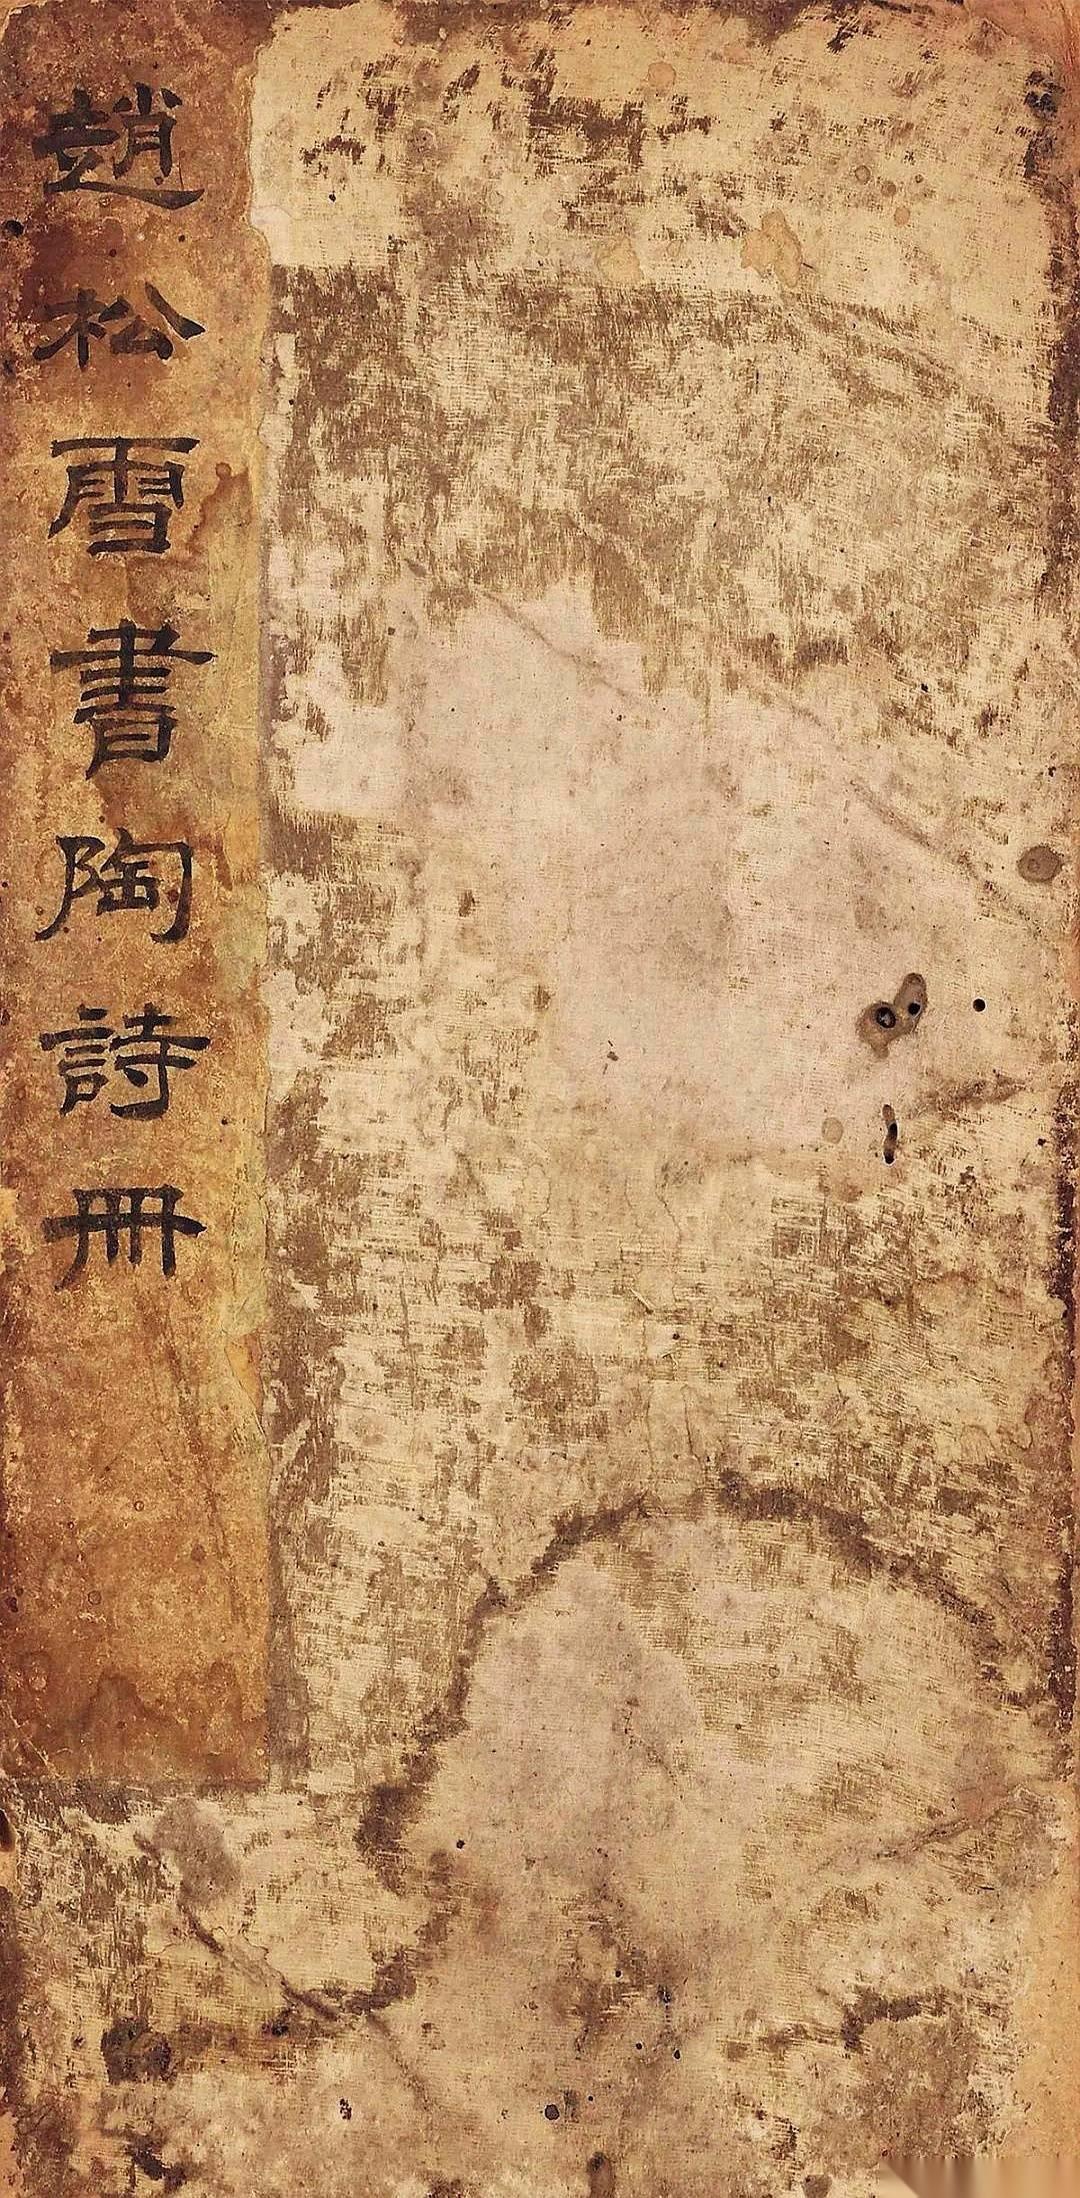 趙松雪書陶詩冊